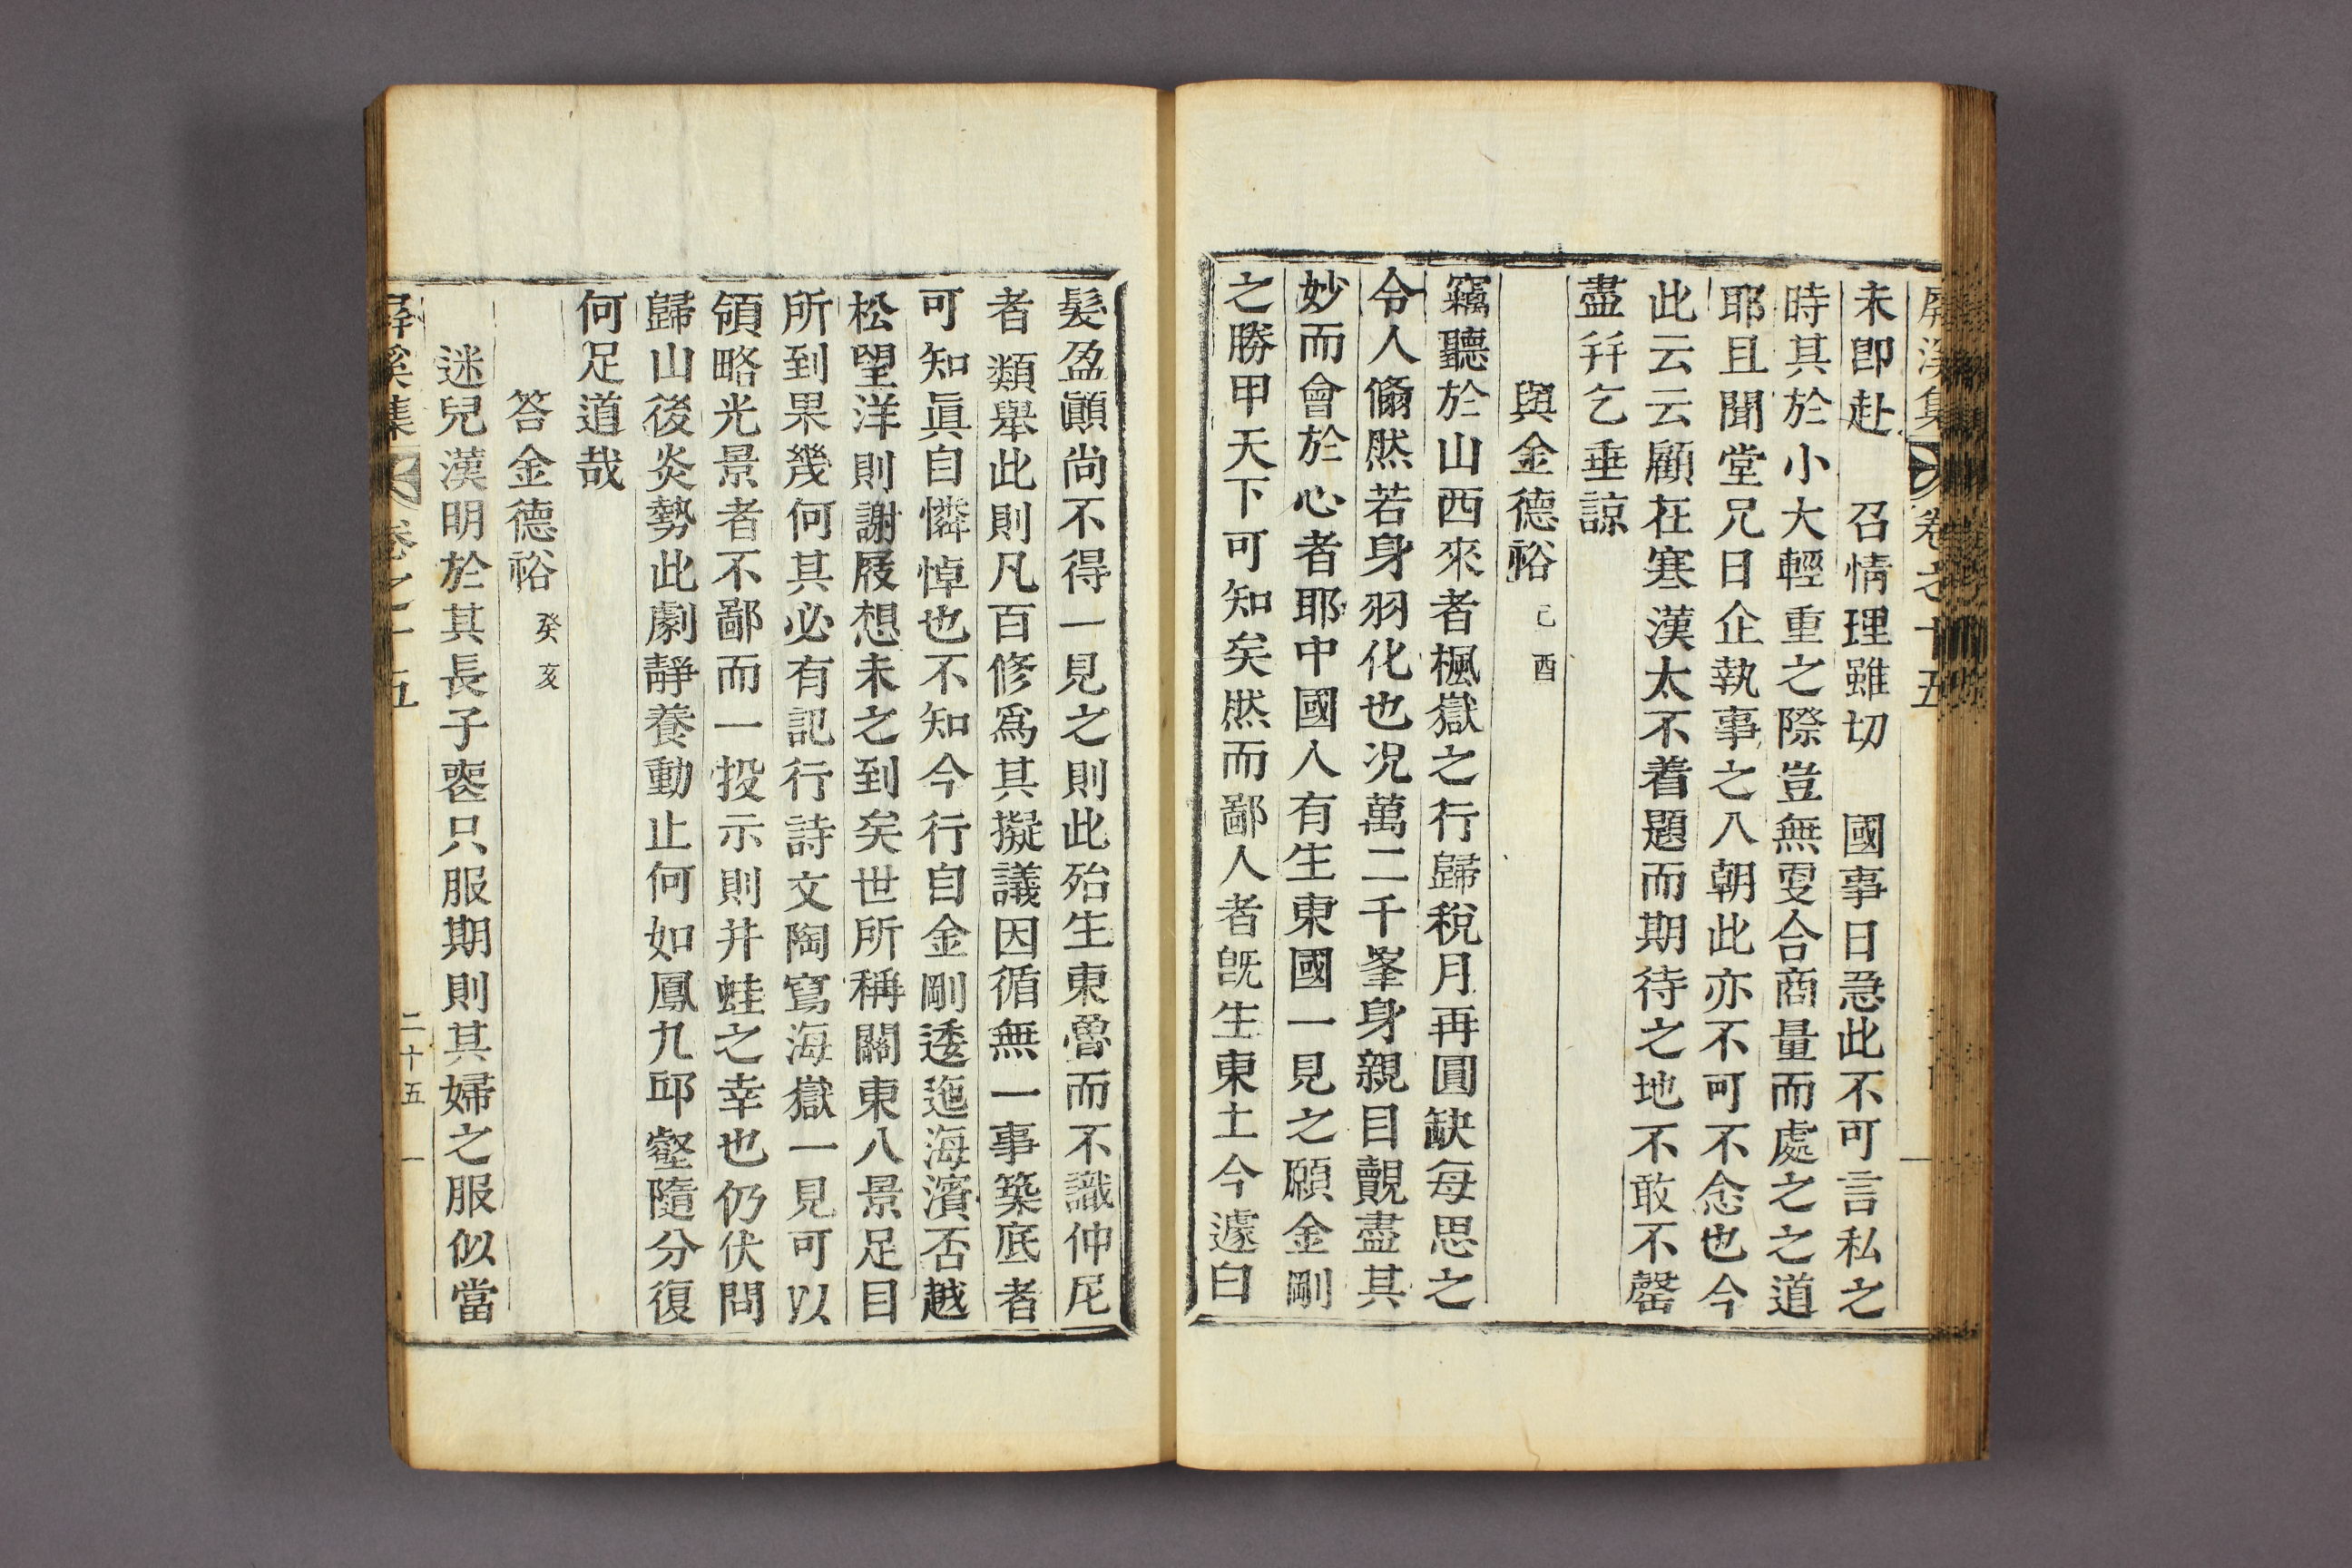 屛溪集 卷之十五
未卽赴 召情理雖切 國事日急此不可言私之
時其於小大輕重之際豈無更合商量而處之之道
耶且聞堂兄日企執事之入朝此亦不可不念也今
此云云顧在寒漢太不着題而期待之地不敢不罄
盡幷乞垂諒
與金德裕 己酉
竊聽於山西來者楓嶽之行歸稅月再圓缺每思之
令人翛然若身羽化也况萬二千峯身親目覩盡其
妙而會於心者耶中國人有生東國一見之願金剛
之勝甲天下可知矣然而鄙人者旣生東土今遽白
髮盈顚尙不得一見之則此殆生東魯而不識仲尼
者類擧此則凡百修爲其擬議因循無一事築底者
可知眞自憐悼也不知今行自金剛逶迤海濱否越
松望洋則謝屐想未之到矣世所稱關東八景足目
所到果幾何其必有記行詩文陶寫海嶽一見可以
領略光景者不鄙而一投示則井蛙之幸也仍伏問
歸山後炎勢此劇靜養動止何如鳳九邱壑隨分復
何足道哉
答金德裕 癸亥
迷兒漢明於其長子喪只服期則其婦之服似當
屛溪集 卷之十五 二十五